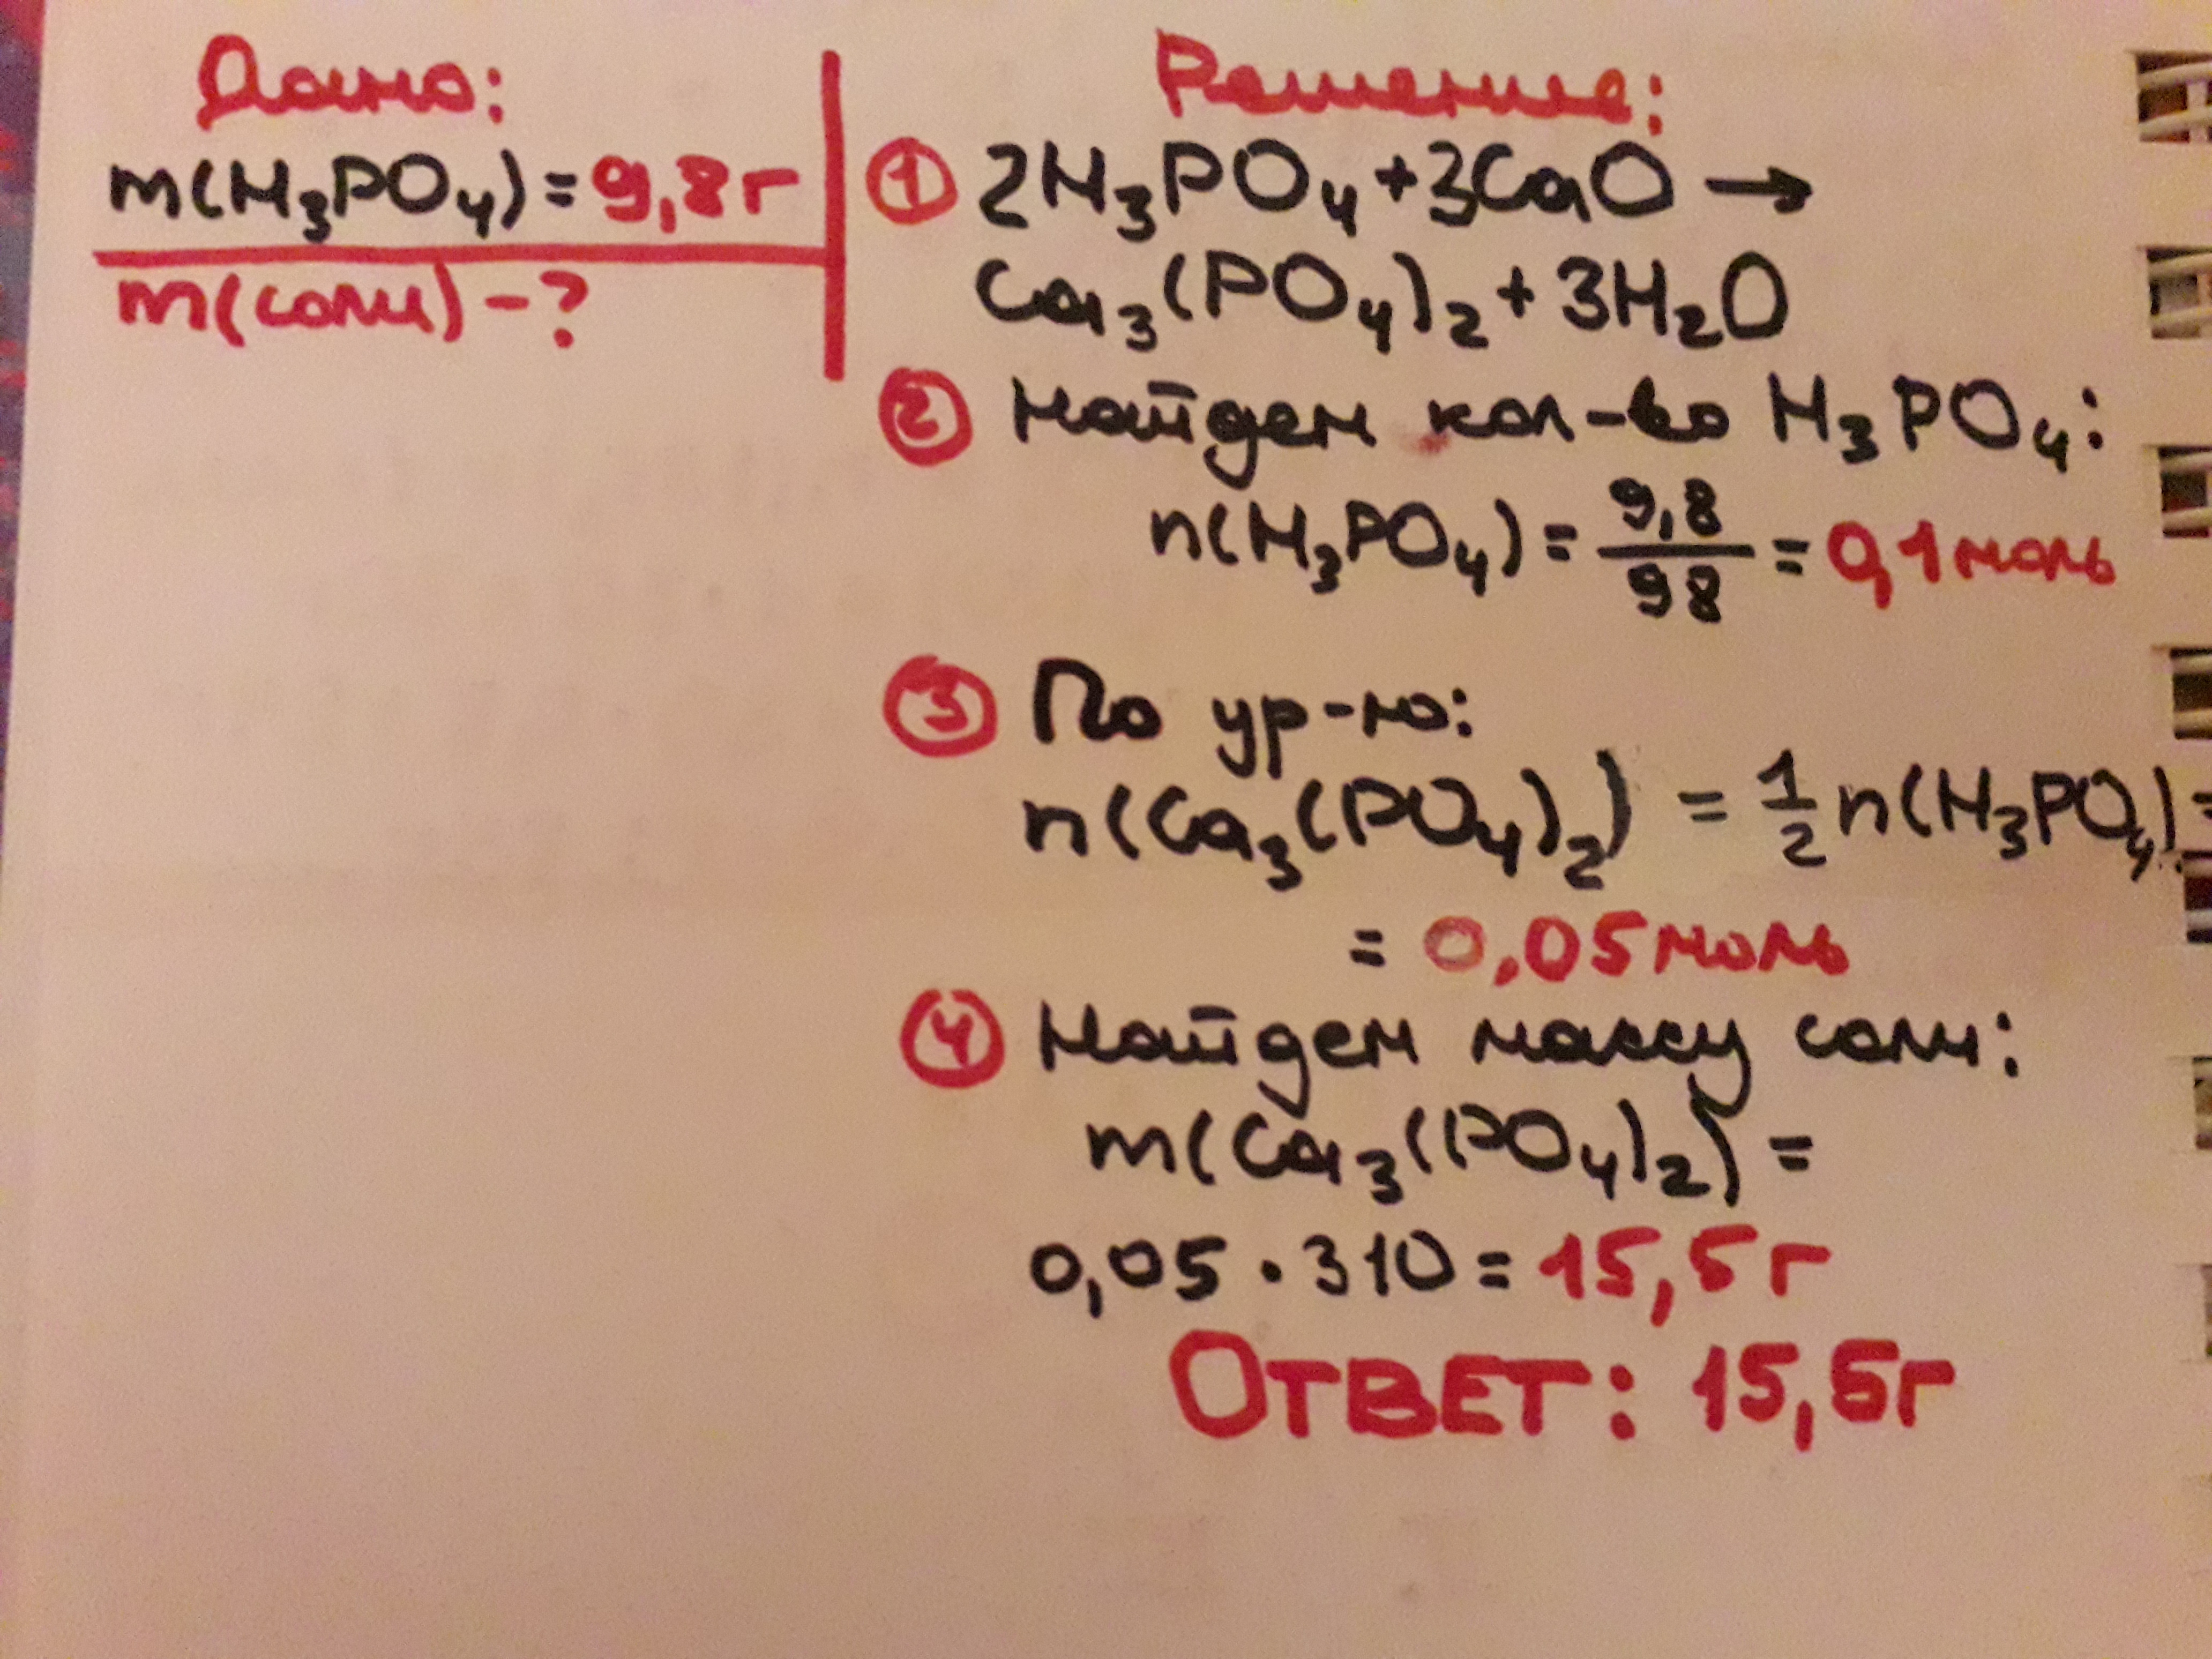 Дано:
m(H₃PO₄) = 9,8г
m(соли) - ?
Решение:
① 2H₃PO₄ + 3CaO →
Ca₃(PO₄)₂ + 3H₂O
② Найдем кол-во H₃PO₄:
n(H₃PO₄) = 9,8/98 = 0,1 моль
③ По ур-ю:
n(Ca₃(PO₄)₂) = 1/2 n(H₃PO₄) =
= 0,05 моль
④ Найдем массу соли:
m(Ca₃(PO₄)₂) =
0,05 · 310 = 15,5 г
ОТВЕТ: 15,5г